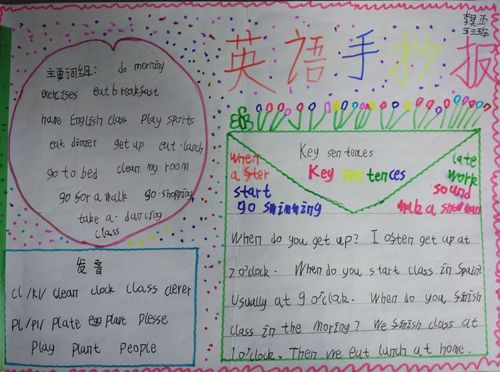 英语手抄报
主要词组: do morning
exercises eat breakfast
have English class play sports
eat dinner get up eat lunch
go to bed clean my room
go for a walk go shopping
take a dancing
class
发音
cl /kl/ clean clock class clerer
pl /pl/ plate eggplant plesse
play plant people
Key sentences
Key sentences
when
after
start
go swimming
late
work
sound
When do you get up? I often get up at
7 o'clock. When do you start class in Spain?
Usually at 9 o'clock. When do you finish
class in the moring? We finish class at
1 o'clock. Then we eat lunch at home.